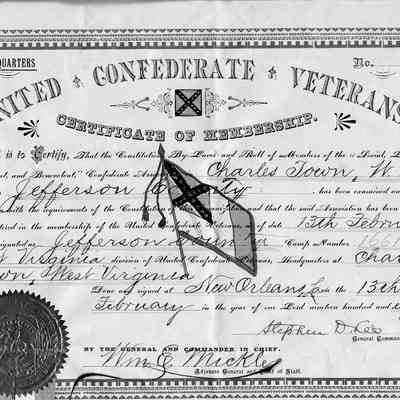 QUARTERS No.
NITED CONFEDERATE VETERANS
CERTIFICATE OF MEMBERSHIP.
is to Certify, That the Constitution, By-Laws and Roll of Members of the "Social,
and Benevolent," Confederate Charles Town, W.
Jefferson County has been examined
with the requirements of the Constitution and that the said Association has been
tered in the membership of the United Confederate Veterans, as of date 13th Febru
signated as Jefferson County Camp Number
Virginia division of United Confederate Veterans, Headquarters at Char
own, West Virginia
Done and signed at New Orleans, La on the 13th
February in the year of our Lord nineteen hundred and
Stephen D. Lee
General Comman
BY THE GENERAL AND COMMANDER IN CHIEF.
Wm E. Mickle
Adjutant General and Chief of Staff.